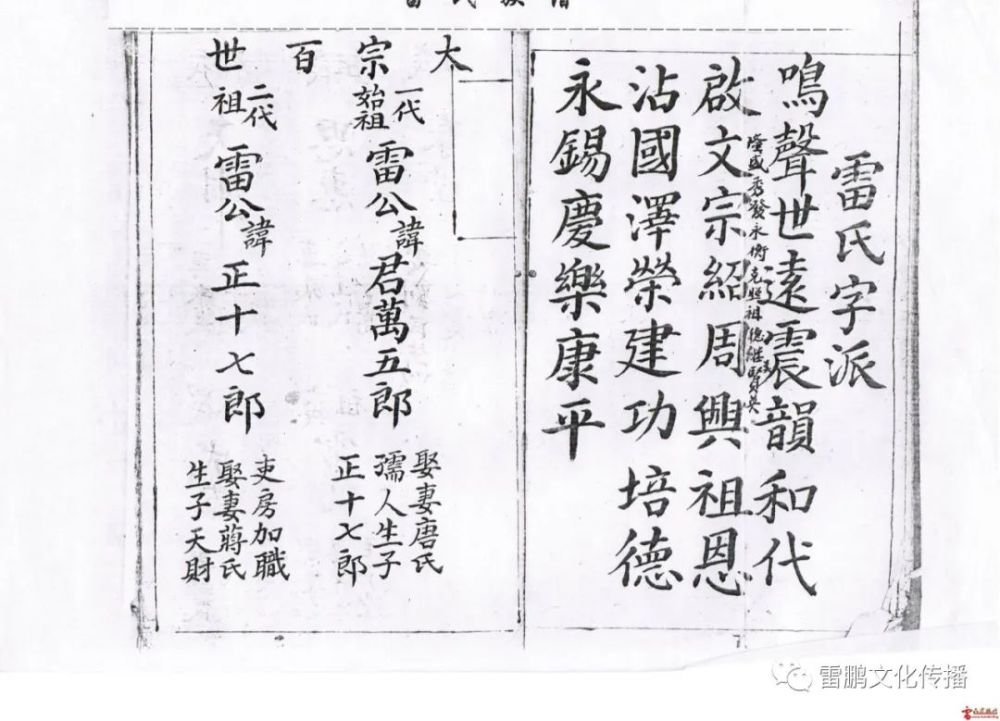 雷氏字派
鳴聲世遠震韻和代
盛秀發永祖德繼賢英
啟文宗紹周興祖恩
沾國澤榮建功培德
永錫慶樂康平
大宗百世
一代
始祖
雷公諱君萬五郎
娶妻唐氏
孺人生子
正十七郎
二代
祖
雷公諱正十七郎
吏房加職
娶妻蔣氏
生子天財
雷鹏文化传播